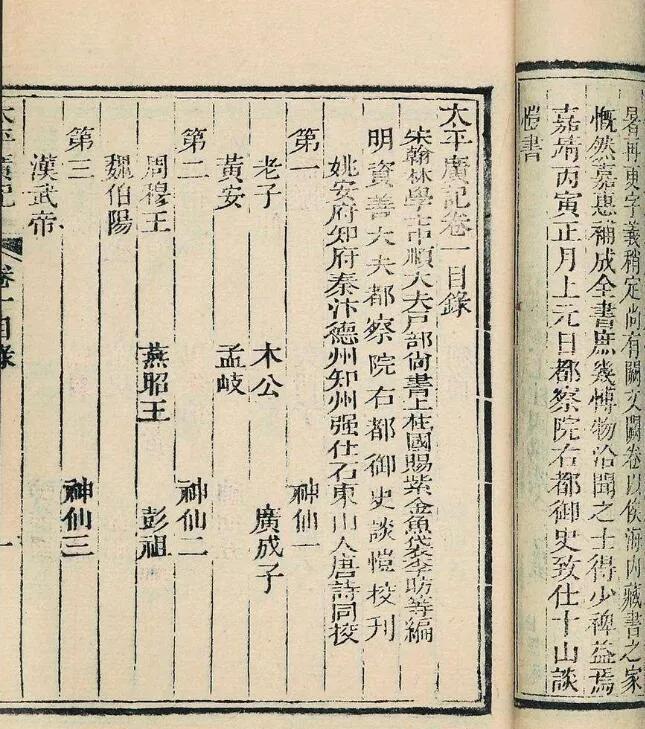 暑再更字義稍定尚有闕文闕卷以俟海內藏書之家
慨然嘉惠補成全書庶幾博物洽聞之士得少裨益焉
嘉靖丙寅正月上元日都察院右都御史致仕十山談
愷書
太平廣記卷一目錄
宋翰林學士中順大夫戶部尚書上柱國賜紫金魚袋李昉等編
明資善大夫都察院右都御史談愷校刊
姚安府知府秦汴德州知州强仕石東山人唐詩同校
第一 神仙一
老子 木公 廣成子
黃安 孟岐
第二 神仙二
周穆王 燕昭王 彭祖
魏伯陽
第三 神仙三
漢武帝
太平廣記 卷一目錄 一